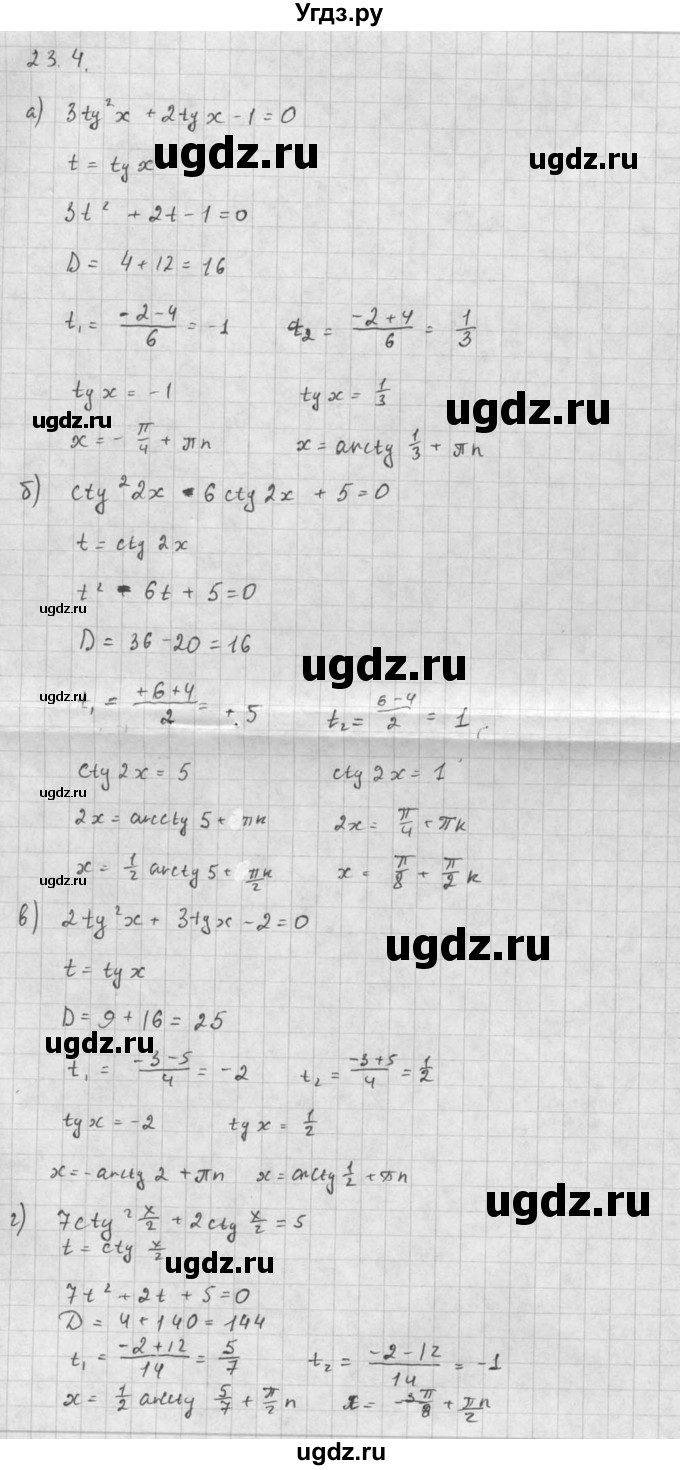 Угдз.ру
23.4.
а) 3tg²x + 2tg x - 1 = 0
ugdz.ru ugdz.ru
t = tg x
3t² + 2t - 1 = 0
D = 4 + 12 = 16
t₁ = (-2-4)/6 = -1 t₂ = (-2+4)/6 = 1/3
tg x = -1 tg x = 1/3
ugdz.ru ugdz.ru
x = -π/4 + πn x = arctg 1/3 + πn
б) ctg²2x - 6ctg 2x + 5 = 0
t = ctg 2x
t² - 6t + 5 = 0
ugdz.ru
D = 36 - 20 = 16
ugdz.ru
ugdz.ru
t₁ = (+6+4)/2 = +5 t₂ = (6-4)/2 = 1
ctg 2x = 5 ctg 2x = 1
ugdz.ru
2x = arcctg 5 + πк 2x = π/4 + πк
x = 1/2 arctg 5 + πк/2 x = π/8 + π/2 к
ugdz.ru
в) 2tg²x + 3tgx - 2 = 0
ugdz.ru
t = tg x
D = 9 + 16 = 25
ugdz.ru
t₁ = (-3-5)/4 = -2 t₂ = (-3+5)/4 = 1/2
tg x = -2 tg x = 1/2
x = -arctg 2 + πn x = arctg 1/2 + πn
ugdz.ru
г) 7ctg² x/2 + 2ctg x/2 = 5
t = ctg x/2
ugdz.ru
7t² + 2t + 5 = 0
D = 4 + 140 = 144
t₁ = (-2+12)/14 = 5/7 t₂ = (-2-12)/14 = -1
x = 1/2 arctg 5/7 + π/2 n x = -3π/8 + πn/2
ugdz.ru